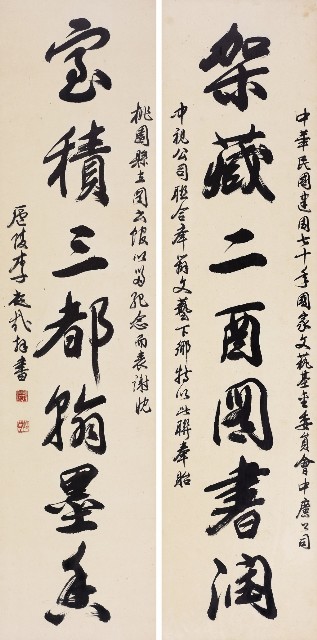 中華民國建國七十年國家文藝基金委員會中廣公司
架藏二酉圖書潤
中視公司聯合舉辦文藝下鄉特以此聯奉貽
桃園縣立圖書館以留紀念而表謝忱
室積三都翰墨香
李超哉撰書